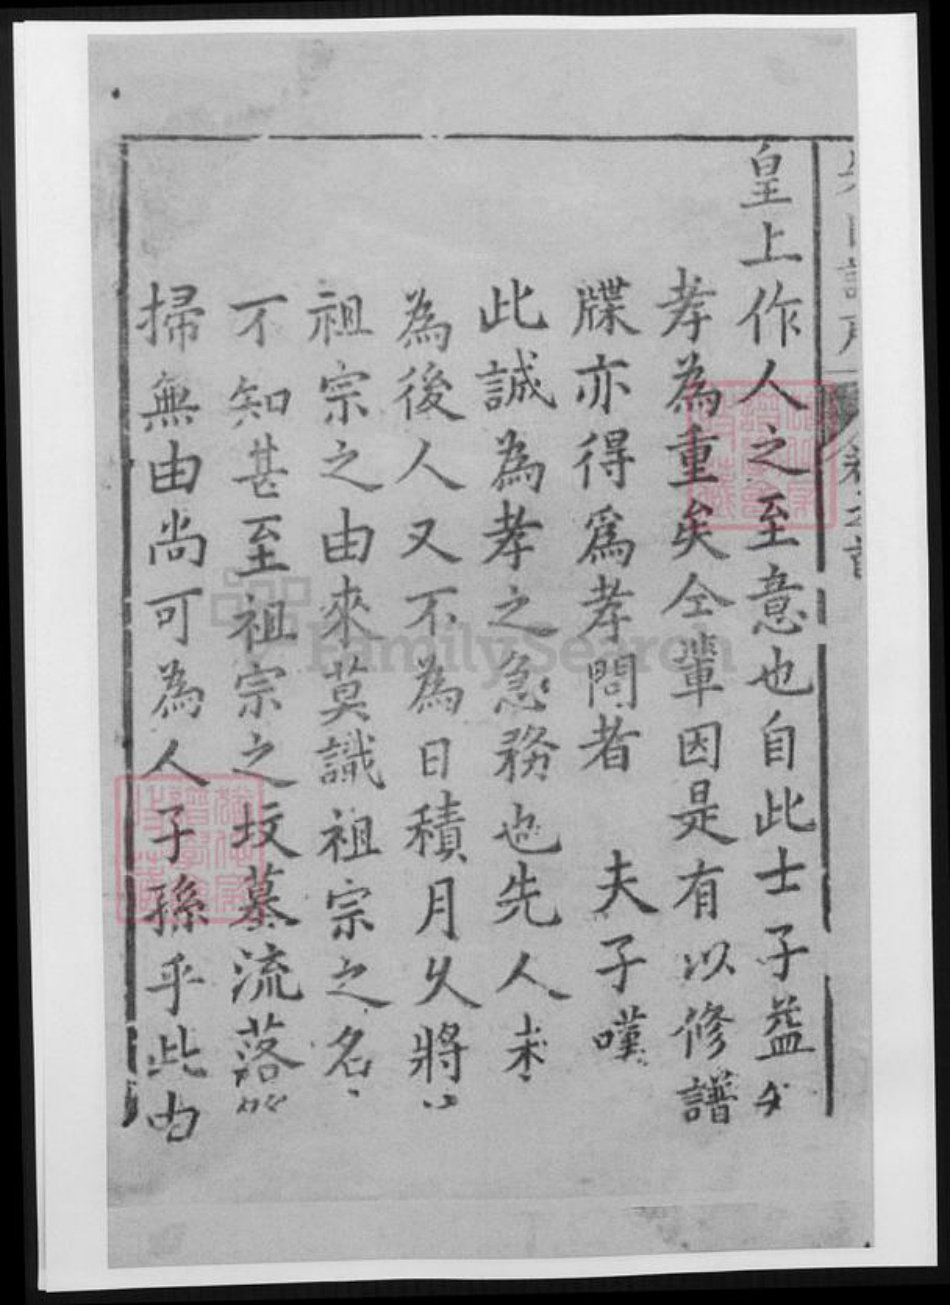 皇上作人之至意也自此士子益
孝為重矣仝輩因是有以修譜
牒亦得爲孝問者 夫子嘆
此誠為孝之急務也先人未
為後人又不為日積月久將
祖宗之由來莫識祖宗之名
不知甚至祖宗之坟墓流落
掃無由尚可為人子孫乎此由
FamilySearch